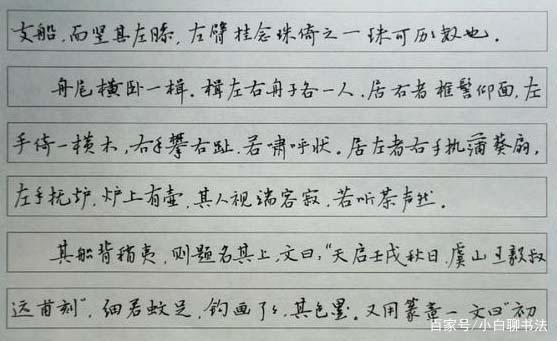 支船,而竖其左膝,左臂挂念珠倚之一珠可历数也。
舟尾横卧一楫。楫左右舟子各一人。居右者椎髻仰面,左
手倚一横木,右手攀右趾,若啸呼状。居左者右手执蒲葵扇,
左手抚炉,炉上有壶,其人视端容寂,若听茶声然。
其船背稍夷,则题名其上,文曰:"天启壬戌秋日,虞山王毅叔
远甫刻",细若蚊足,钩画了了,其色墨。又用篆章一文曰"初
百家号/小白聊书法